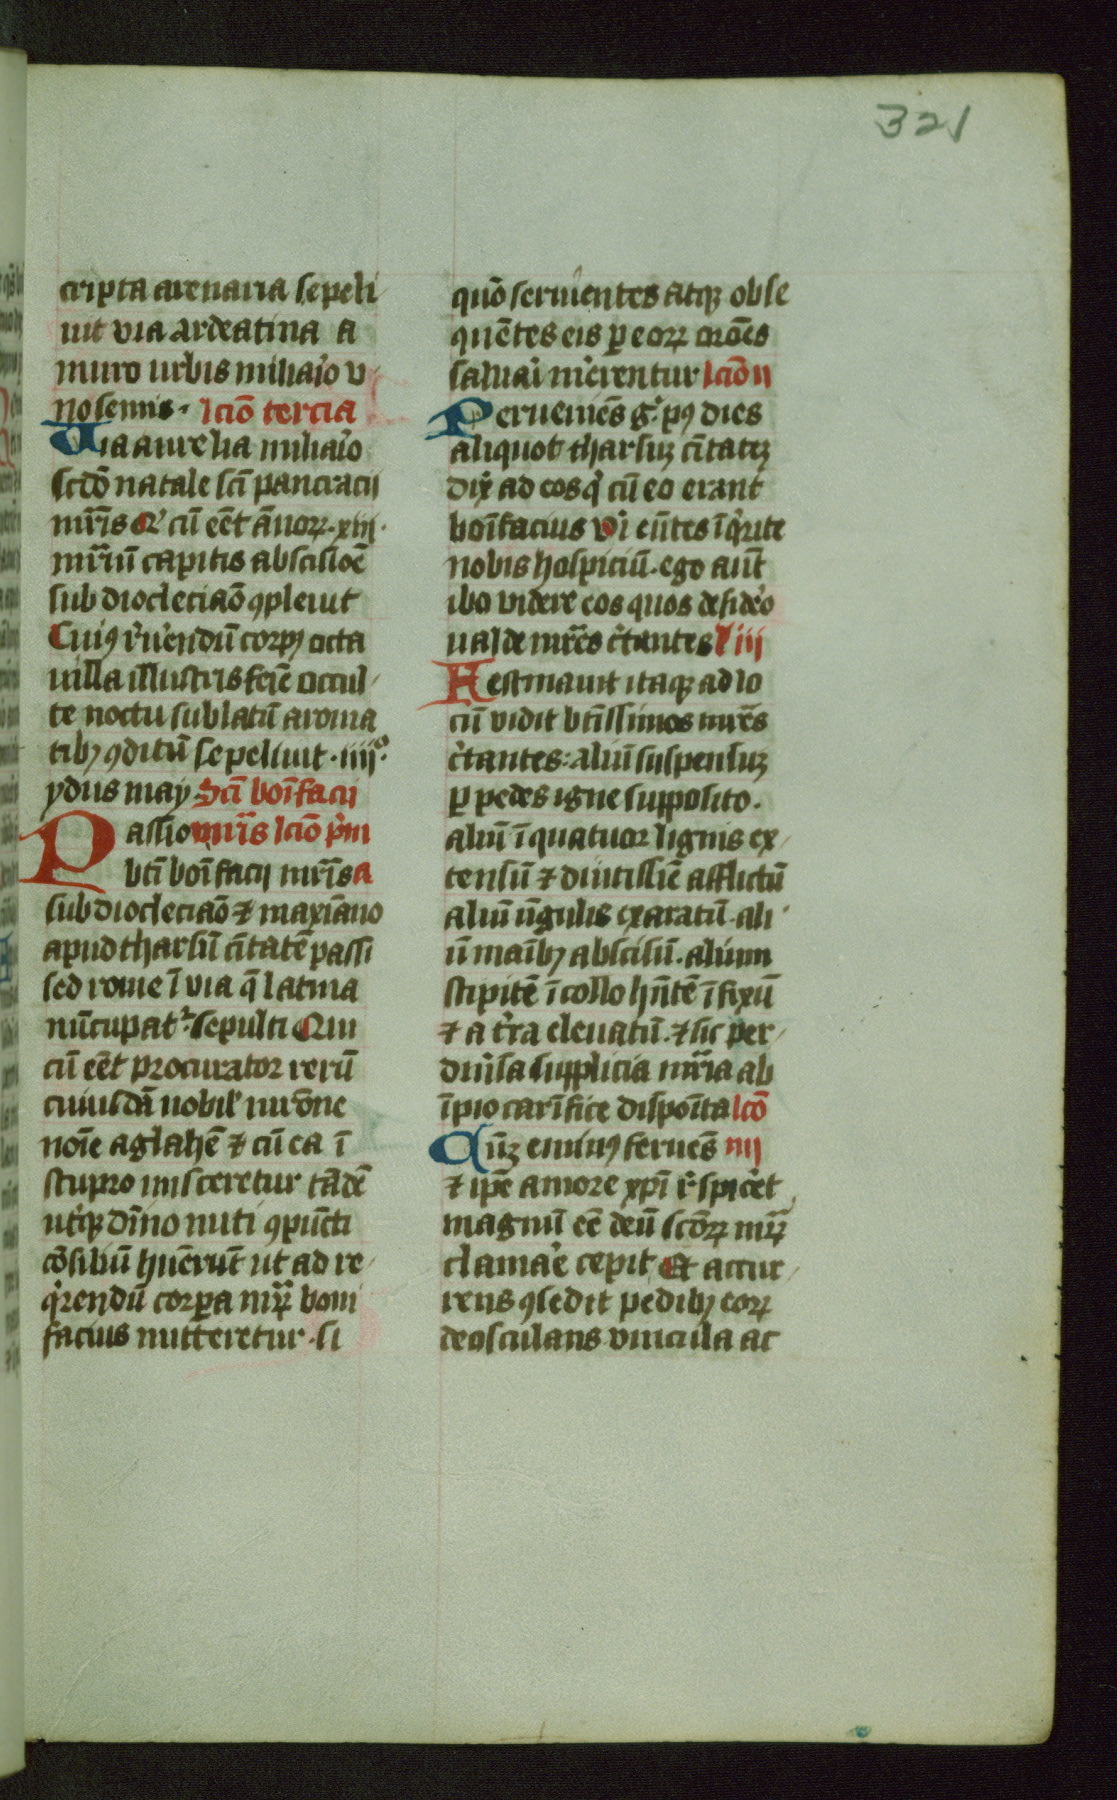 321
cripta arenaria sepeli
uit via ardeatina a
muro urbis miliaỉo v
no semis. lcıo̅ tercia
Uia aurelia miliaỉo
scd̅o natale sc̅i pancracij
mr̅is Q' cu̅ ee̅t a̅noꝝ .xiiij.
mr̅iu̅ capitis abscisio̅e
sub diocletiao̅ ꝯpleuit
Cuiꝰ r̉ue̅rendu̅ corpꝰ octa
uilla illustris fei̅e occul
te noctu sublatu̅ aroma
tibꝫ ꝯditu̅ sepeliuit .iiij°.
ydus may Sc̅i boi̅facij
Passio mr̅is lcıo̅ p̉m
bt̅i boi̅facij mr̅is a
sub diocletiao̅ ⁊ maxi̅ano
apud tharsu̅ ci̅tate̅ passi
sed rome i̅ via q̅ latina
nu̅cupat᷑. sepulti Qui
cu̅ ee̅t procurator reru̅
cuiusda̅ nobil' mr̅one
noi̅e aglahe̅ ⁊ cu̅ ea i̅
stupro misceretur ta̅de̅
ut̉qꝫ di̅no nuti ꝯpu̅cti
co̅siliu̅ hue̅ru̅t ut ad re
q̉rendu̅ corꝑa mr̅ꝝ boni
facius mitteretur. si
quo̅ seruientes atqꝫ obse
que̅tes eis ꝑ eoꝝ oro̅es
saluaỉ m̉erentur lcıo̅ ij
Perueniẽs g̉ pꝰ dies
aliquot tharsuꝫ ci̅tateꝫ
dix̉ ad eos q̉ cu̅ eo erant
boi̅facius vỉ eu̅tes i̅q̉rite
nobis hospiciu̅. ego au̅t
ibo videre eos quos desidẻo
ualde mr̅es c̉tantes l' iij
Festinauit itaqꝫ ad lo
cu̅ vidit bt̅issimos mr̅es
c̉tantes: aliu̅ suspensuꝫ
ꝑ pedes igne supposito.
aliu̅ i̅ quatuor lignis ex
tensu̅ ⁊ diutissi̅e afflictu̅
aliu̅ u̅gulis exaratu̅. ali
u̅ mai̅bꝫ abscisu̅. aliu̅m
stipite̅ i̅ collo hn̅te̅ i̅fixu̅
⁊ a t̉ra eleuatu̅. ⁊ sic per
diủsa supplicia mr̅ia ab
i̅pio carni̅fice dispoi̅ta lcō
Qu̅ꝫ eminꝰ ferue̅s iiij
⁊ ip̅e amore xp̅i r̉spic̉et
magnu̅ ee̅ deu̅ scto̅ꝝ mr̅ꝝ
clamaẻ cepit Et accur
rens ꝯsedit pedibꝫ eoꝝ
deosculans vincula ac